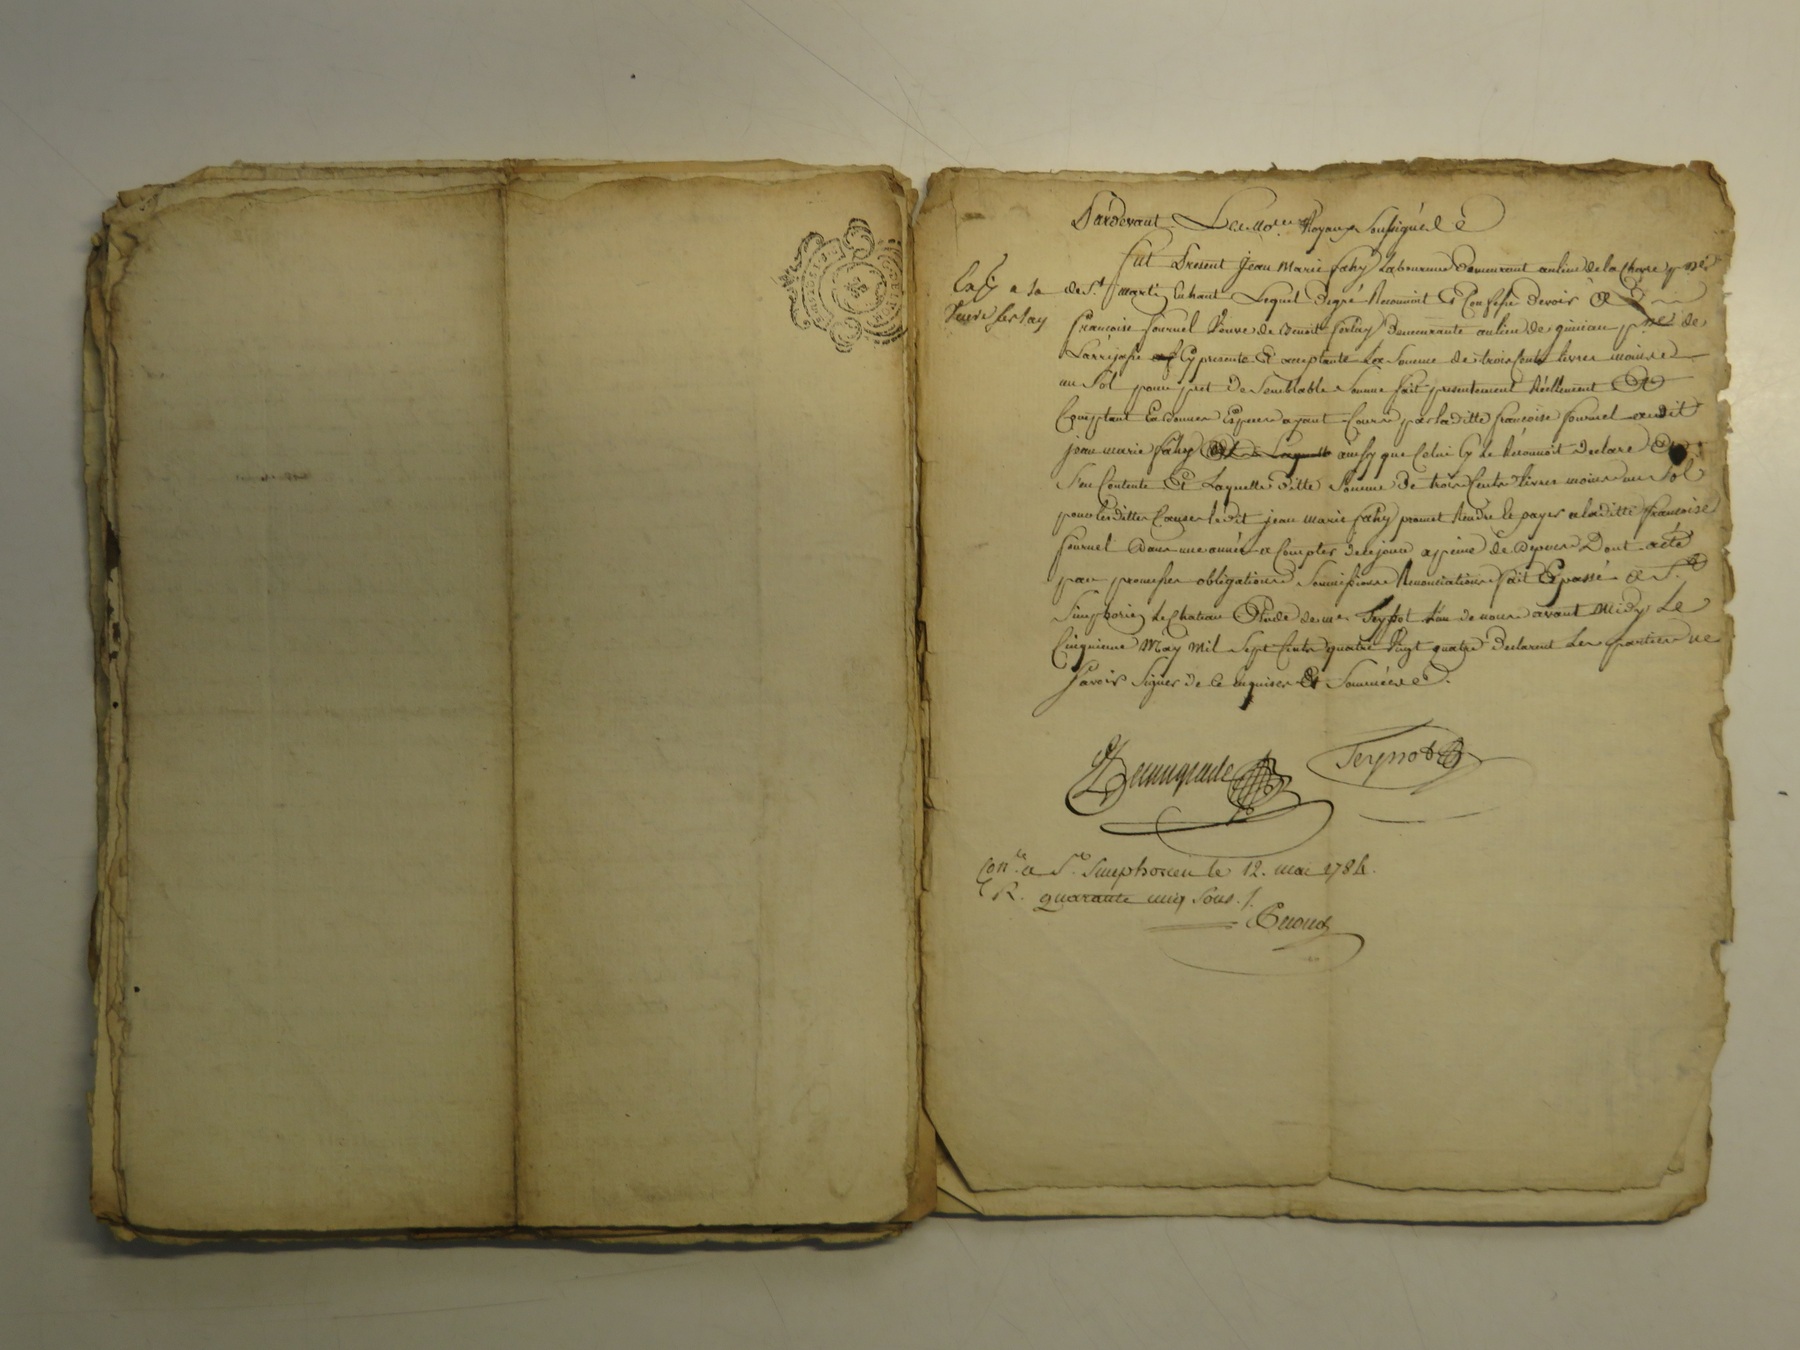 Pardevant Les No.res Royaux Soussignés
Fut Present Jean Marie fahy Laboureur Demeurant au lieu de la Chave p.sse
Exp. a la
de S.t marti En haut Lequel degré Reconnoit Et Confesse devoir a
Veuve ferlay
francoise fournel Veuve de Benoit ferlay Demeurante au lieu de p.sse de
Larrajasse Cy presente Et acceptante La Somme de trois Cents livres moins
un Sol pour pret de Semblable Somme fait presentement Réellement Et
Comptant En bonnes Especes ayant Cours par laditte francoise fournel audit
jean marie fahy ainsy que Celui Cy Le Reconnoit Declare Et
S'en Contente Et Laquelle ditte Somme de trois Cents livres moins un Sol
pour lesdittes Causes ledit jean marie fahy promet Rendre Et payer a laditte francoise
fournel dans une année a Compter de ce jour a peine de depens Dont acte
par promesses obligations Soumissions Renonciations fait Et passé a S.t
Simphorien Le Chateau Etude de m.e Teyssot L'un de nous avant Midy Le
Cinquieme May Mil Sept Cents quatre Vingt quatre Declarent Les parties ne
Savoir Signer de Ce Enquises Et Sommées
Teyssot
Con.lé a S.t Simphorien le 12. mai 1784.
R. quarante cinq Sous.